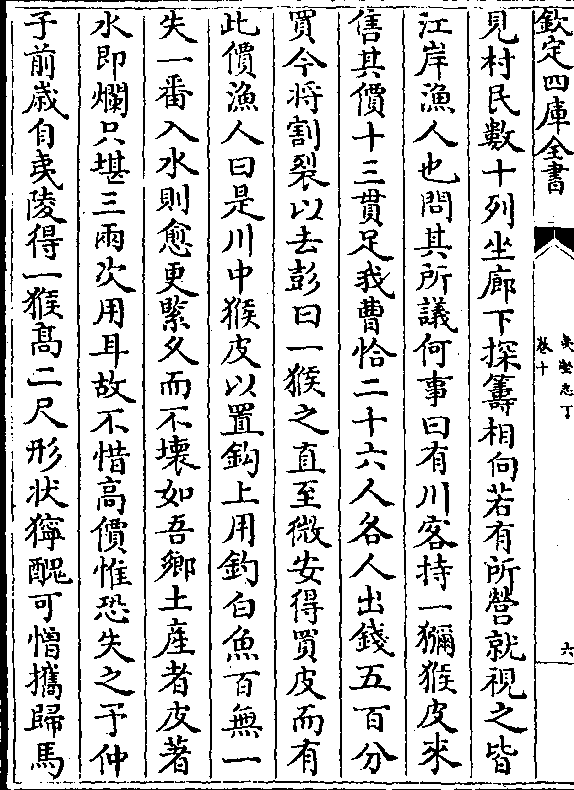 欽定四庫全書
夷堅志丁
卷十
六
見村民數十列坐廊下探籌相向若有所營就視之皆
江岸漁人也問其所議何事曰有川客持一獼猴皮來
售其價十三貫足我曹恰二十六人各人出錢五百分
買今将割裂以去彭曰一猴之直至微安得買皮而有
此價漁人曰是川中猴皮以置鈎上用釣白魚百無一
失一番入水則愈更緊久而不壊如吾鄉土産者皮著
水即爛只堪三兩次用耳故不惜高價惟恐失之予仲
子前歳自夷陵得一猴髙二尺形状獰醜可憎攜歸馬